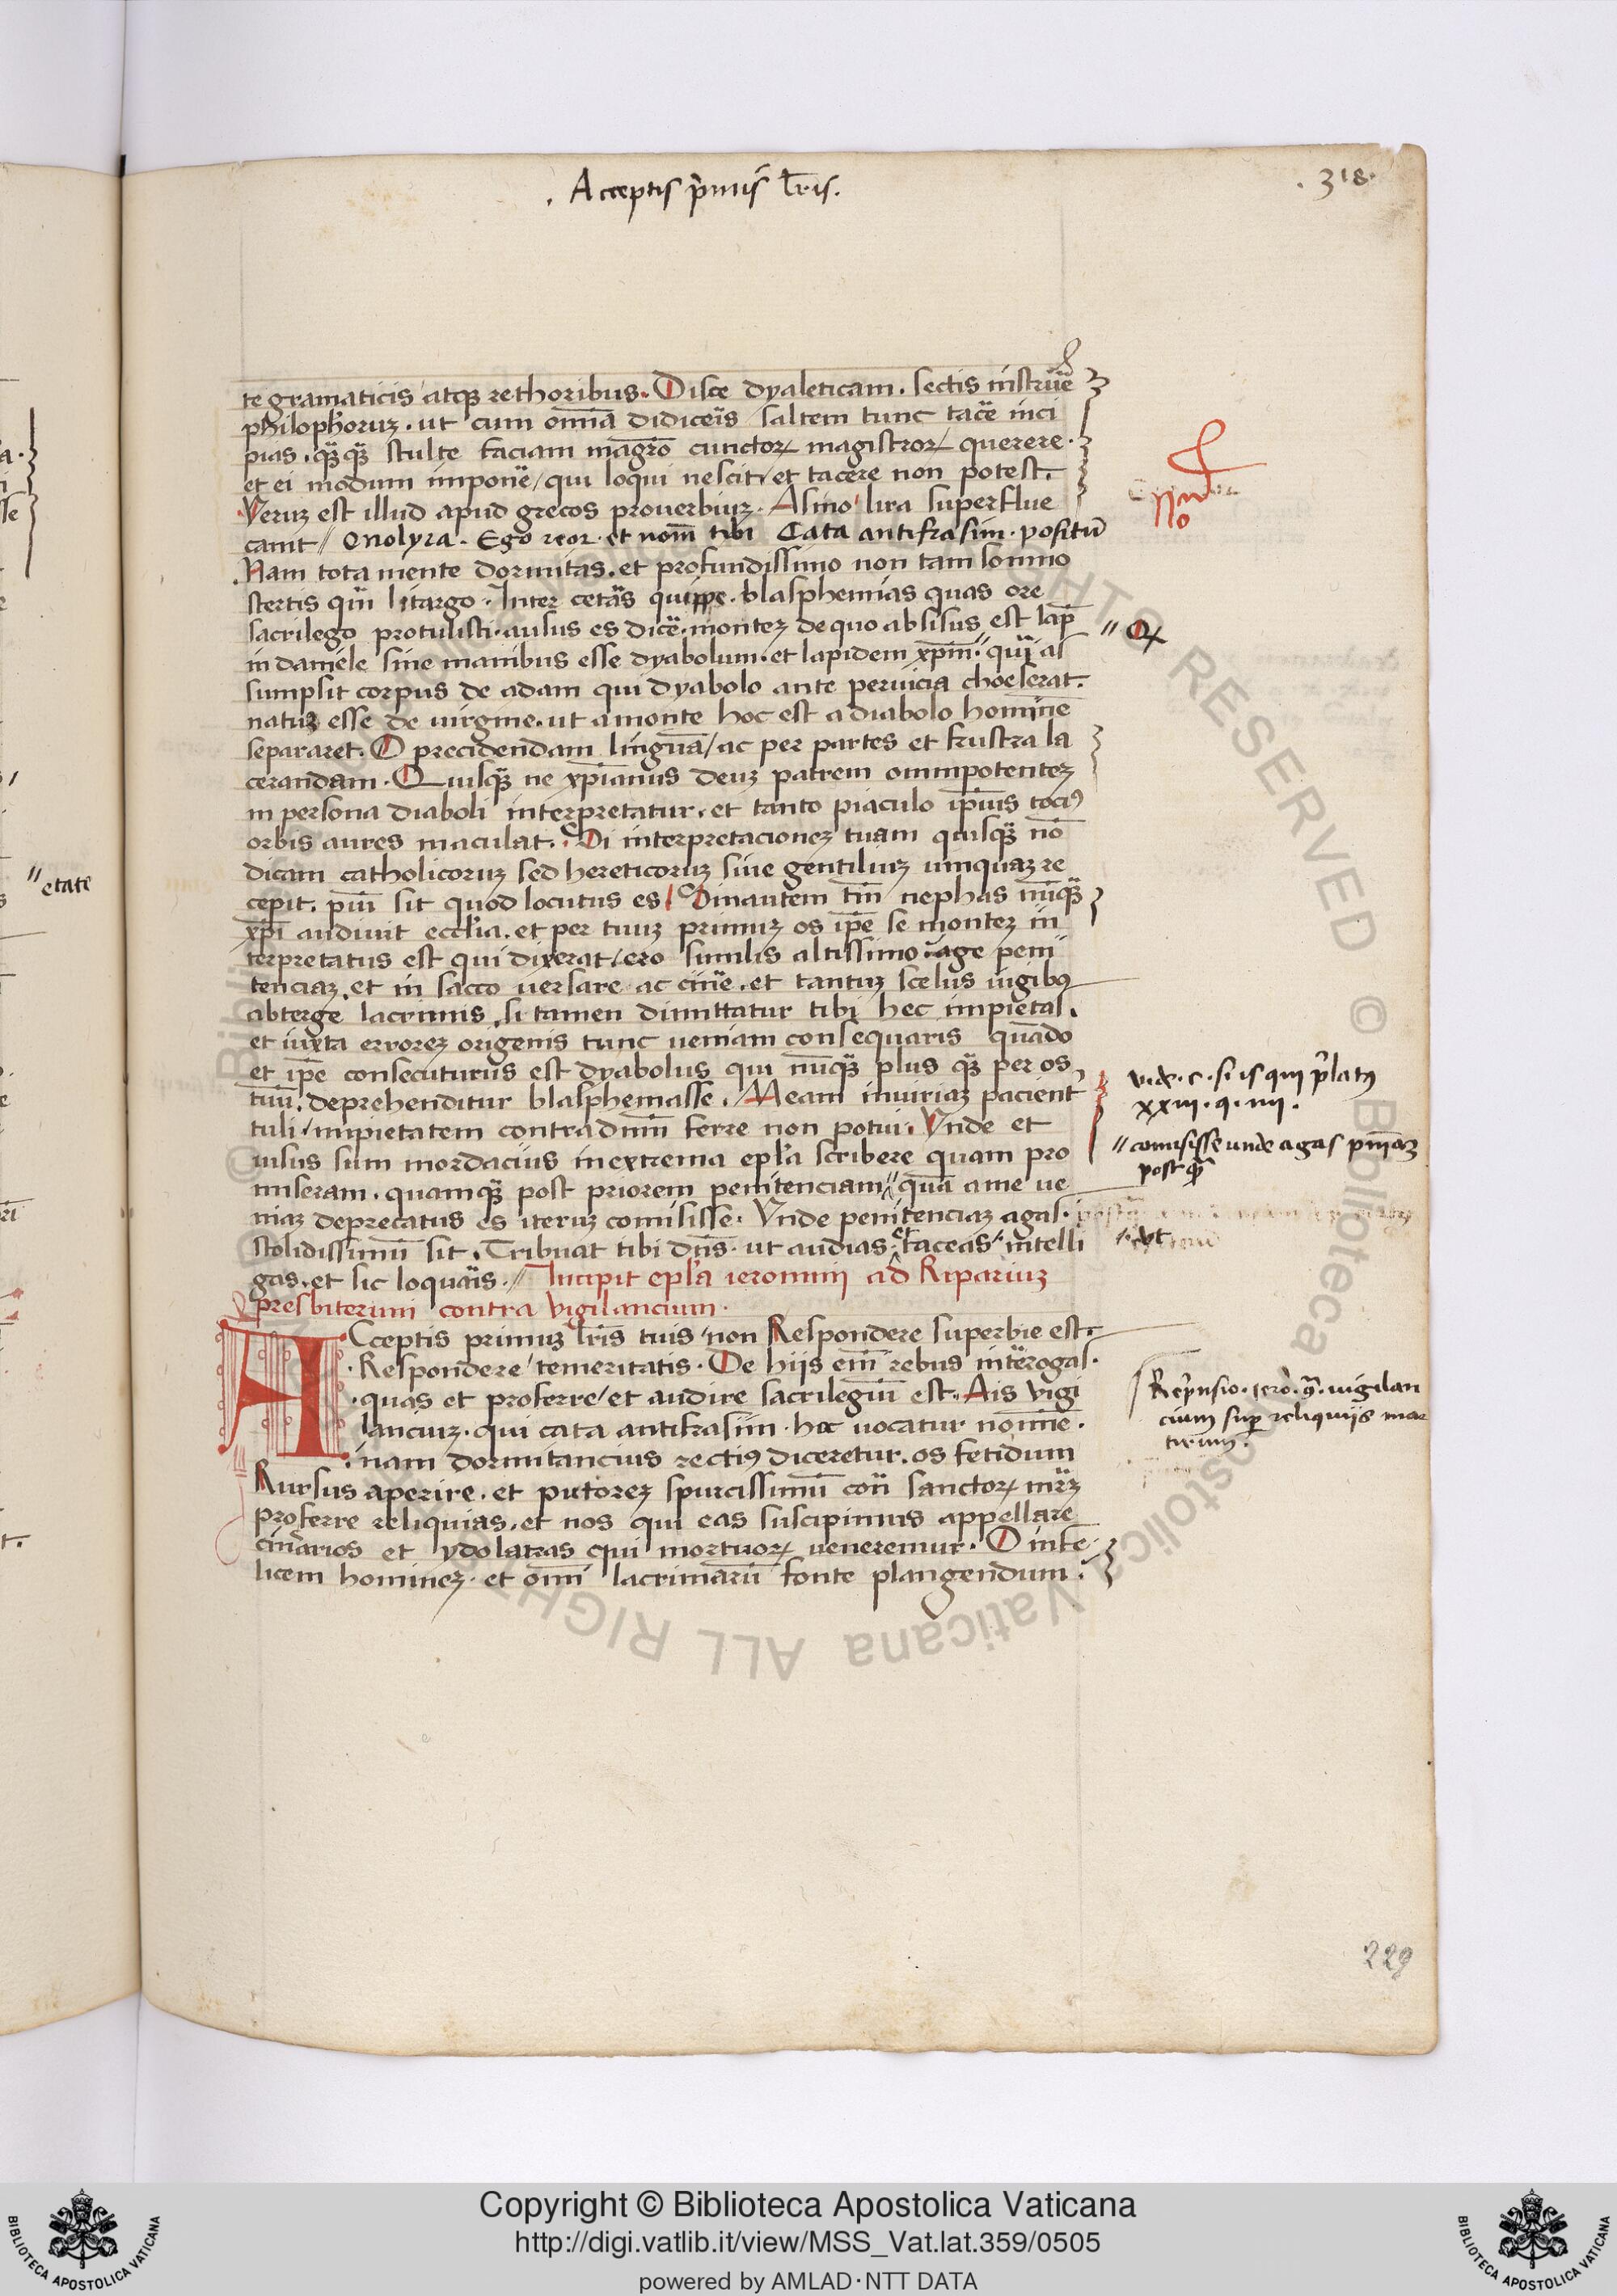 . Acceptis p̄mis̄ lr̄is .
. 318 .
te gramaticis / atqꝫ rethoribus . Disce dyaleticam . sectis instrue͂
philosophoruꝫ . ut cum om̄ia didicer̄is saltem tunc tace͂ inci
pias . qꝫ̄qꝫ̄ stulte faciam magr̄o cunctoꝝ magistroꝝ querere .
et ei modum impone͂ / qui loqui nescit / et tacere non potest .
Veruꝫ est illud apud grecos prouerbiuꝫ . Asino lira superflue
canit // Onolyra . Ego reor et nom̄ tibi Cata antifrasim . positū
Nam tota mente dormitas . et profundissimo non tam somno
stertis qm̄ litargo . Inter ceta͂s quippe . blasphemias quas ore
sacrilego protulisti . ausus es dice͂ . monteꝫ de quo absisus est lap̄
in daniele sine manibus esse dyabolum . et lapidem xp̄m . // qui as
sumpsit corpus de adam qui dyabolo ante peruicia choeserat .
natuꝫ esse de uirgine . ut a monte hoc est a diabolo homine͂
separaret . O precidendam linguā / ac per partes et frustra la
cerandam . Quisqꝫ̄ ne xp̄ianus deuꝫ patrem omnipotenteꝫ
in persona diaboli interpretatur . et tanto piaculo ip̄ius toci⁹
orbis aures maculat . Si interpretacioneꝫ tuam quisqꝫ̄ nō
dicam catholicoruꝫ sed hereticoruꝫ siue gentiliuꝫ umquaꝫ re
cepit . piū sit quod locutus es / Sinautem tm̄ nephas nūqꝫ̄
xp̄i audiuit eccl'ia . et per tuuꝫ primuꝫ os ip̄e se monteꝫ in
terpretatus est qui dixerat / ero similis altissimo . age peni
tenciaꝫ . et in sacco uersare ac cine͂ . et tantuꝫ scelus iugib⁹
abterge lacrimis . si tamen dimittatur tibi hec impietas .
et iuxta erroreꝫ origenis tunc ueniam consequaris quādo
et ip̄e consecuturus est dyabolus qui nūqꝫ̄ plus qꝫ̄ per os
tuū . deprehenditur blasphemasse . Meam iniuriaꝫ pacient͂
tuli / impietatem contra dm̄ ferre non potui . Vnde et
uisus sum mordacius in extrema epl'a scribere quam pro
miseram . quamqꝫ̄ post priorem penitenciam // quā a me ue
niaꝫ deprecatus es iteruꝫ comisisse . Vnde penitenciaꝫ agas .
stolidissimū sit . Tribuat tibi dn̄s . ut audias et taceas // intelli
gas . et sic loqua͂is . // Incipit epl'a ieronimi ad Ripariuꝫ
presbiterum contra vigilancium .
ACceptis primuꝫ lr̄is tuis / non Respondere superbie est .
. Respondere / temeritatis . De hijs em̄ rebus inte͂rogas .
. quas et proferre / et audire sacrilegiū est . Ais vigi
lanciuꝫ . qui cata antifrasim . hoc uocatur nomine .
. nam dormitancius recti⁹ diceretur . os fetidum
Rursus aperire . et putoreꝫ spurcissimū con͂ sanctoꝝ mr͂ꝫ
proferre reliquias . et nos qui eas suscipimus appellare
cinarios et ydolatras qui mortuoꝝ ueneremur . O infe
licem homineꝫ . et om̄i lacrimarū fonte plangendum .
// etate
vide . c . si is qui p̄lat⁹
xxiii . q . iiii .
// comisisse unde agas pn̄iaꝫ
post qꝫ̄
// ut
Rep̄nsio . iero . 9͂ . uigilan
cium sup̄ reliquijs mar
tirum .
229
Copyright © Biblioteca Apostolica Vaticana
http://digi.vatlib.it/view/MSS_Vat.lat.359/0505
powered by AMLAD·NTT DATA
BIBLIOTECA APOSTOLICA VATICANA
BIBLIOTECA APOSTOLICA VATICANA